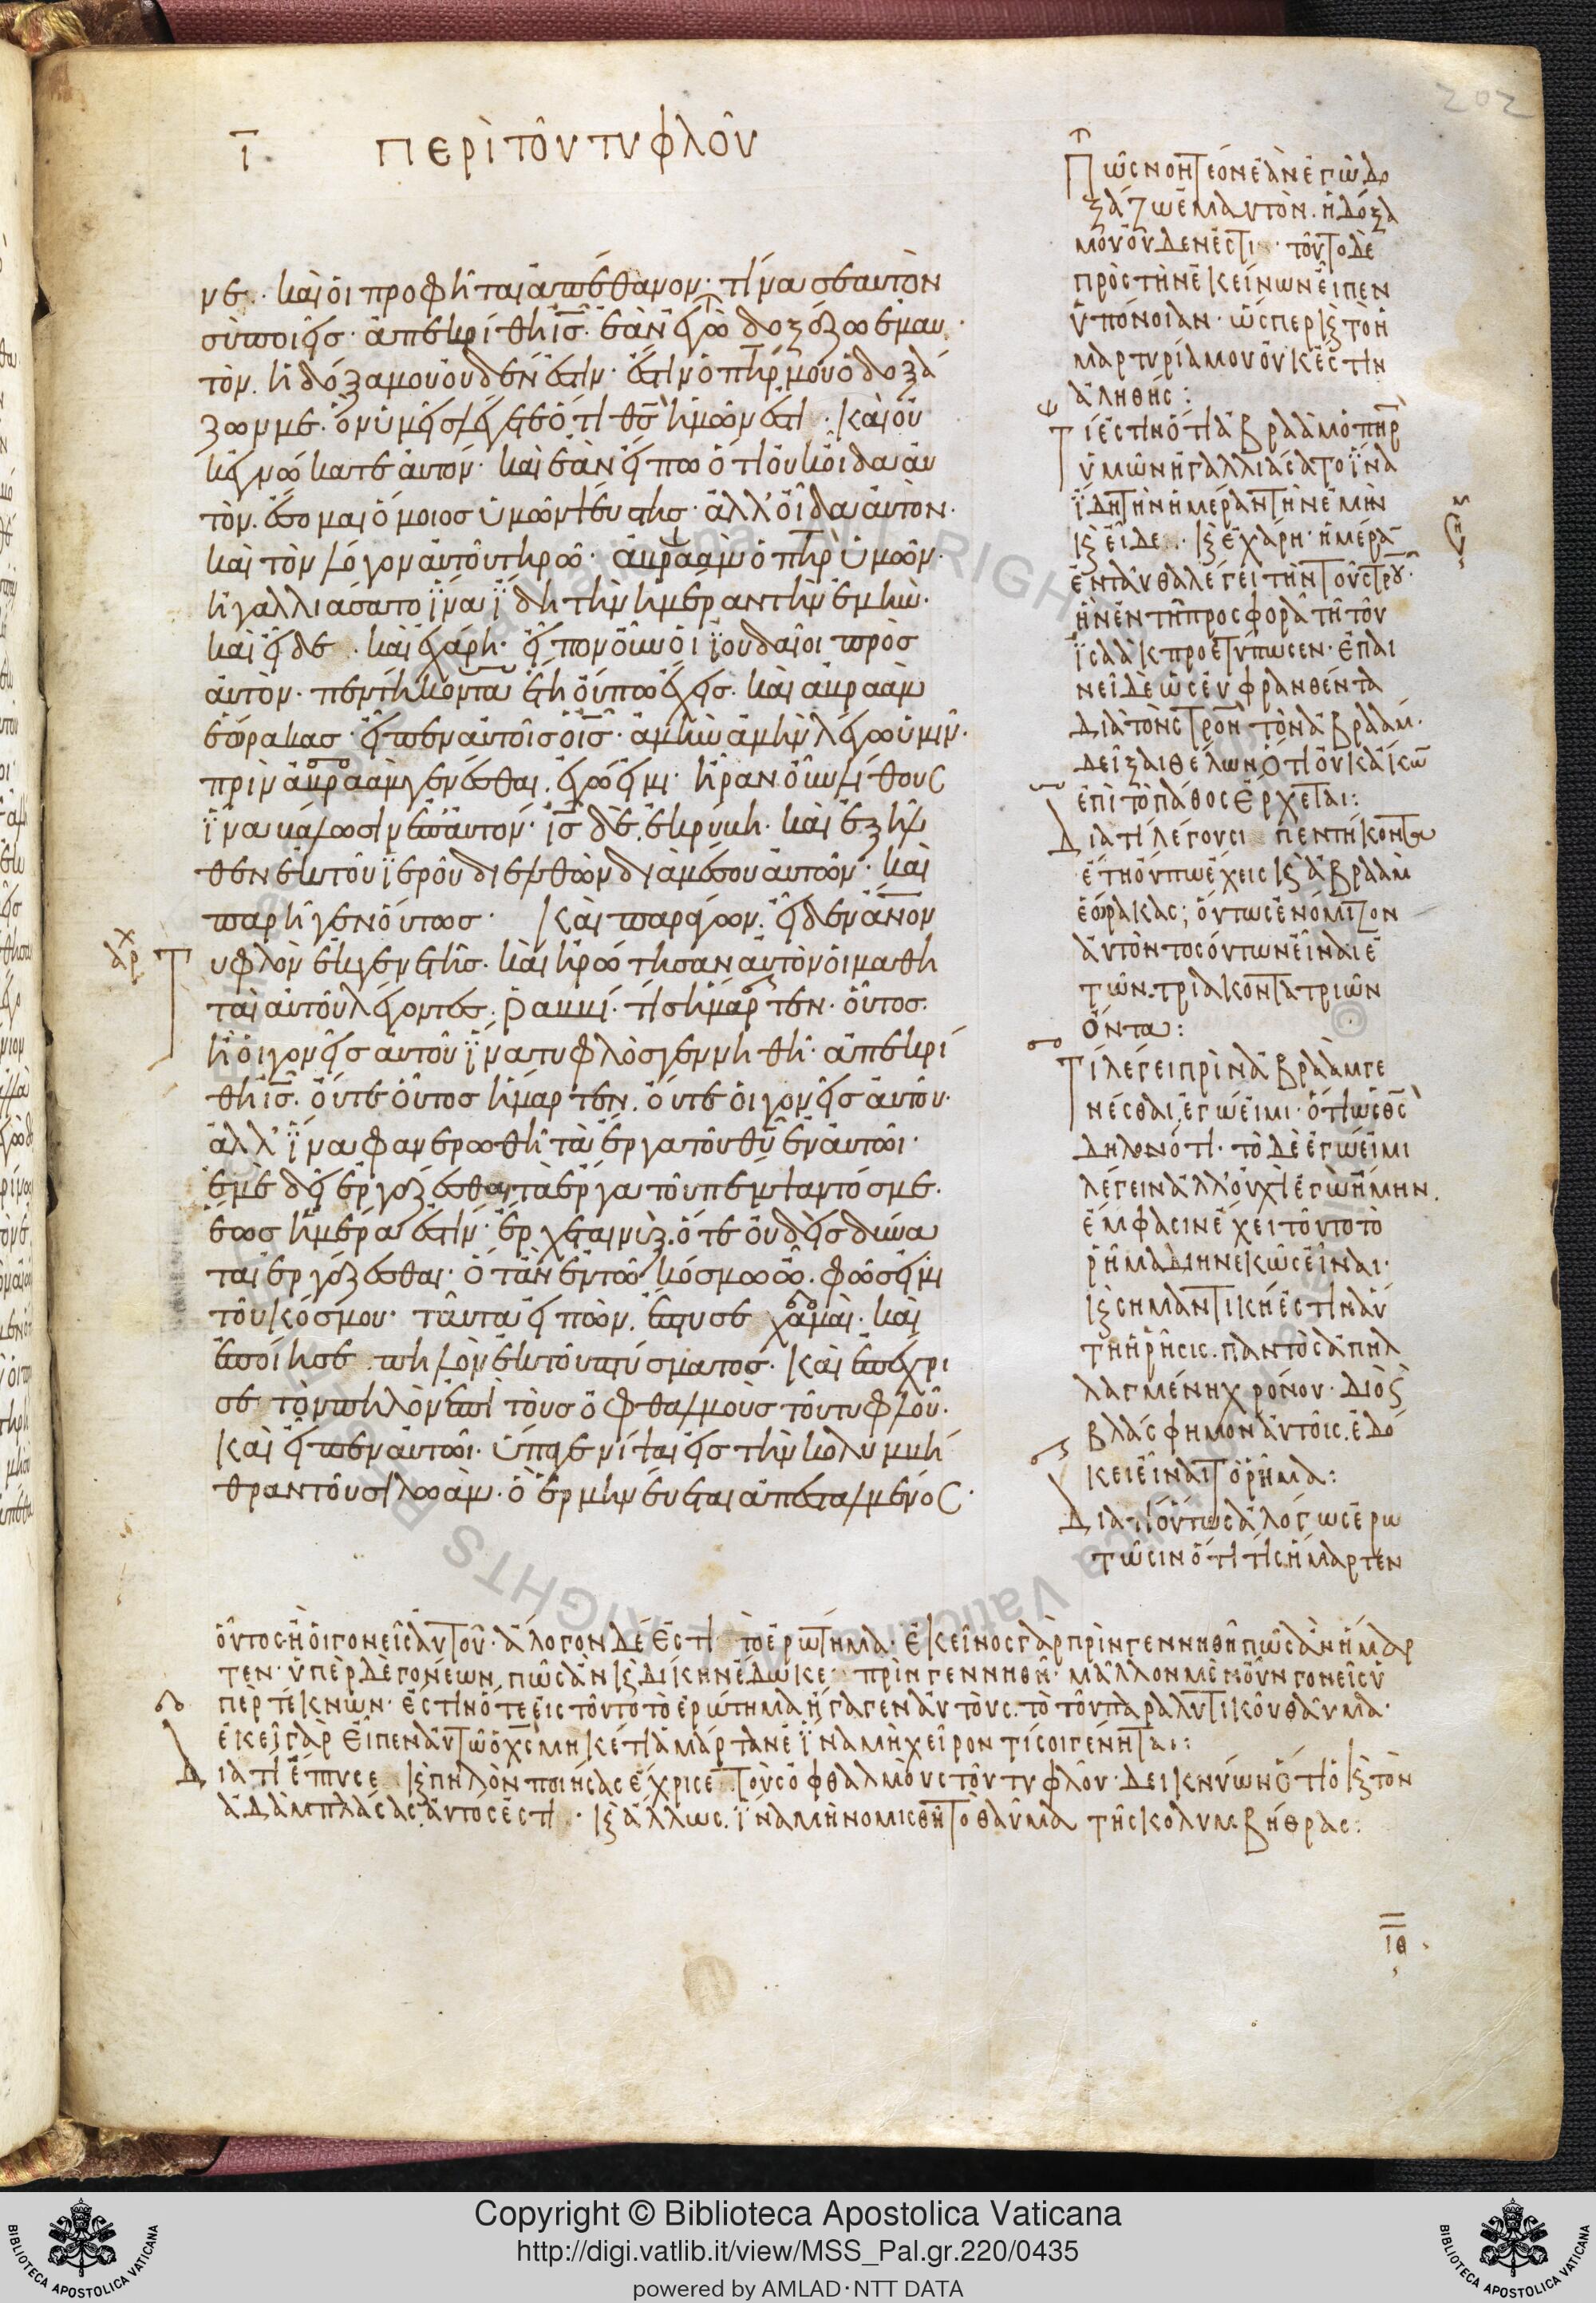 202
ι̅ περὶ τοῦ τυφλοῦ
νε. καὶ οἱ προφῆται ἀπέθανον· τίνα σεαυτὸν
σὺ ποιεῖς· ἀπεκρίθη ι̅ς̅. ἐὰν ἐγὼ δοξάζω ἐμαυ
τόν. ἡ δόξα μου οὐδέν ἐστιν· ἔστιν ὁ πη̅ρ μου ὁ δοξά
ζων με. ὃν ὑμεῖς λέγετε ὅτι θ̅ς̅ ἡμῶν ἐστι. καὶ οὐ
κ ἐγνώκατε αὐτόν· καὶ ἐὰν εἴπω ὅτι οὐκ οἶδα αὐ
τόν. ἔσομαι ὅμοιος ὑμῶν ψεύστης· ἀλλ' οἶδα αὐτὸν·
καὶ τὸν λόγον αὐτοῦ τηρῶ· ἀβραὰμ ὁ πη̅ρ ὑμῶν·
ἠγαλλιάσατο ἵνα ἴδη τὴν ἡμέραν τὴν ἐμήν·
καὶ εἶδε. καὶ ἐχάρη· εἶπον οὖν οἱ ἰουδαῖοι πρὸς
αὐτόν· πεντήκοντα ἔτη οὔπω ἔχεις. καὶ ἀβραὰμ
ἑώρακας· εἶπεν αὐτοῖς ὁ ι̅ς̅· ἀμὴν ἀμὴν λέγω ὑμῖν·
πρὶν ἀβραὰμ γενέσθαι. ἐγώ εἰμι· ἦραν οὖν λίθους
ἵνα βάλωσιν ἐπ' αὐτόν· ι̅ς̅ δὲ ἐκρύβη. καὶ ἐξῆλ
θεν ἐκ τοῦ ἱεροῦ διελθὼν διὰ μέσου αὐτῶν· καὶ
παρῆγεν οὕτως· καὶ παράγων. εἶδεν ἀ̅ν̅ο̅ν
τυφλὸν ἐκ γενετῆς. καὶ ἠρώτησαν αὐτὸν οἱ μαθη
ταὶ αὐτοῦ λέγοντες. ῥαββί. τίς ἥμαρτεν. οὗτος.
ἢ οἱ γονεῖς αὐτοῦ ἵνα τυφλὸς γεννηθῆ· ἀπεκρί
θη ι̅ς̅. οὔτε οὗτος ἥμαρτεν. οὔτε οἱ γονεῖς αὐτοῦ·
ἀλλ' ἵνα φανερωθῆ τὰ ἔργα τοῦ θ̅υ̅ ἐν αὐτῶι·
ἐμὲ δεῖ ἐργάζεσθαι τὰ ἔργα τοῦ πέμψαντός με.
ἕως ἡμέρα ἐστίν· ἔρχεται νὺξ. ὅτε οὐδεὶς δύνα
ται ἐργάζεσθαι· ὅταν ἐν τῶ κόσμω ὦ. φῶς εἰμι
τοῦ κόσμου· ταῦτα εἰπὼν. ἔπτυσε χαμαὶ. καὶ
ἐποίησε πηλὸν ἐκ τοῦ πτύσματος. καὶ ἐπέχρι
σε τὸν πηλὸν ἐπὶ τοὺς ὀφθαλμοὺς τοῦ τυφλοῦ.
καὶ εἶπεν αὐτῶι. ὕπαγε νίψαι εἰς τὴν κολυμβή
θραν τοῦ σιλωάμ. ὃ ἑρμηνεύεται ἀπεσταλμένος·
Πῶς νοητέον ἐὰν ἐγὼ δο
ξάζω ἐμαυτὸν. ἡ δόξα
μου οὐδέν ἐστι· τοῦτο δὲ
πρὸς τὴν ἐκείνων εἶπεν
ὑπόνοιαν· ὥσπερ ϗ τὸ ἡ
μαρτυρία μου οὐκ ἔστιν
ἀληθής:
Τί ἐστιν ὅτι ἀβραὰμ ὁ πη̅ρ
ὑμῶν ἠγαλλιάσατο ἵνα
ἴδη τὴν ἡμέραν τὴν ἐμὴν
ϗ εἶδε. ϗ ἐχάρη· ἡμέρα̅
ἐνταῦθα λέγει τὴν τοῦ στ̅ρ̅ου·
ἣν ἐν τῆ προσφορᾶ τῆ τοῦ
ἰσαὰκ προετύπωσεν· ἐπαι
νεῖ δὲ ὡς εὐφρανθέντα
διὰ τὸν στ̅ρ̅ον τὸν ἀβραάμ·
δεῖξαι θέλων ὅτι οὐκ ἄκων
ἐπὶ τὸ πάθος ἔρχεται:
Διατί λέγουσι πεντήκοντα
ἔτη οὔπω ἔχεις ϗ ἀβραὰμ
ἑώρακας; οὕτως ἐνόμιζον
αὐτὸν τοσούτων εἶναι ἐ
τῶν. τριακοντατριῶν
ὄντα:
Τί λέγει πρὶν ἀβραὰμ γε
νέσθαι, ἐγώ εἰμι· ὅτι ὡς θ̅ς̅
δηλονότι· τὸ δὲ ἐγώ εἰμι
λέγειν ἀλλ' οὐχὶ ἐγὼ ἤμην.
ἔμφασιν ἔχει τοῦτο τὸ
ῥῆμα διηνεκῶς εἶναι·
ϗ σημαντική ἐστιν αὐ
τη ἡ ῥῆσις. παντὸς ἀπηλ
λαγμένη χρόνου· διὸ ϗ
βλάσφημον αὐτοῖς. ἐδό
κει εἶναι τὸ ῥῆμα:
Διατί οὕτως ἀλόγως ἐρω
τῶσιν ὅτι τίς ἥμαρτεν
οὗτος ἢ οἱ γονεῖς αὐτοῦ· ἄλογον δέ ἐστι τὸ ἐρώτημα· ἐκεῖνος γὰρ πρὶν γεννηθῆ πῶς ἂν ἥμαρ
τεν· ὑπὲρ δὲ γονέων πῶς ἂν ϗ δίκην ἔδωκε πρὶν γεννηθῆ· μᾶλλον μὲν οὖν γονεῖς ὑ
πὲρ τέκνων· ἔστιν ὅτε εἰς τοῦτο τὸ ἐρώτημα ἤγαγεν αὐτοὺς. τὸ τοῦ παραλυτικοῦ θαῦμα·
ἐκεῖ γὰρ εἶπεν αὐτῶ ὁ χ̅ς̅ μηκέτι ἁμάρτανε ἵνα μὴ χεῖρον τί σοι γένηται:
Διατί ἔπτυσε ϗ πηλὸν ποιήσας ἔχρισε τοὺς ὀφθαλμοὺς τοῦ τυφλοῦ· δεικνύων ὅτι ὁ ϗ τὸν
ἀδὰμ πλάσας, αὐτός ἐστι· ϗ ἄλλως. ἵνα μὴ νομισθῆ τὸ θαῦμα τῆς κολυμβήθρας:
ιθ
Copyright © Biblioteca Apostolica Vaticana
http://digi.vatlib.it/view/MSS_Pal.gr.220/0435
powered by AMLAD·NTT DATA
BIBLIOTECA APOSTOLICA VATICANA
BIBLIOTECA APOSTOLICA VATICANA